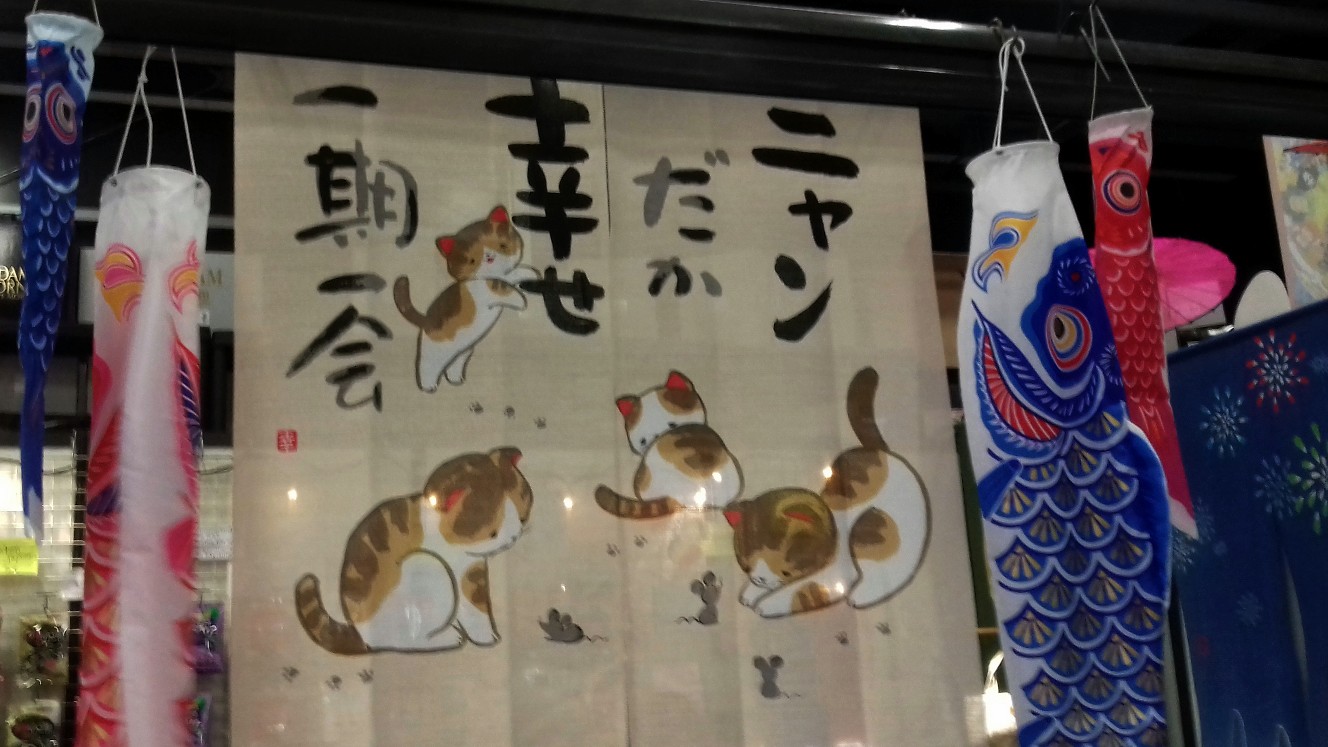 ニャン
だか
幸せ
一期一会
幸